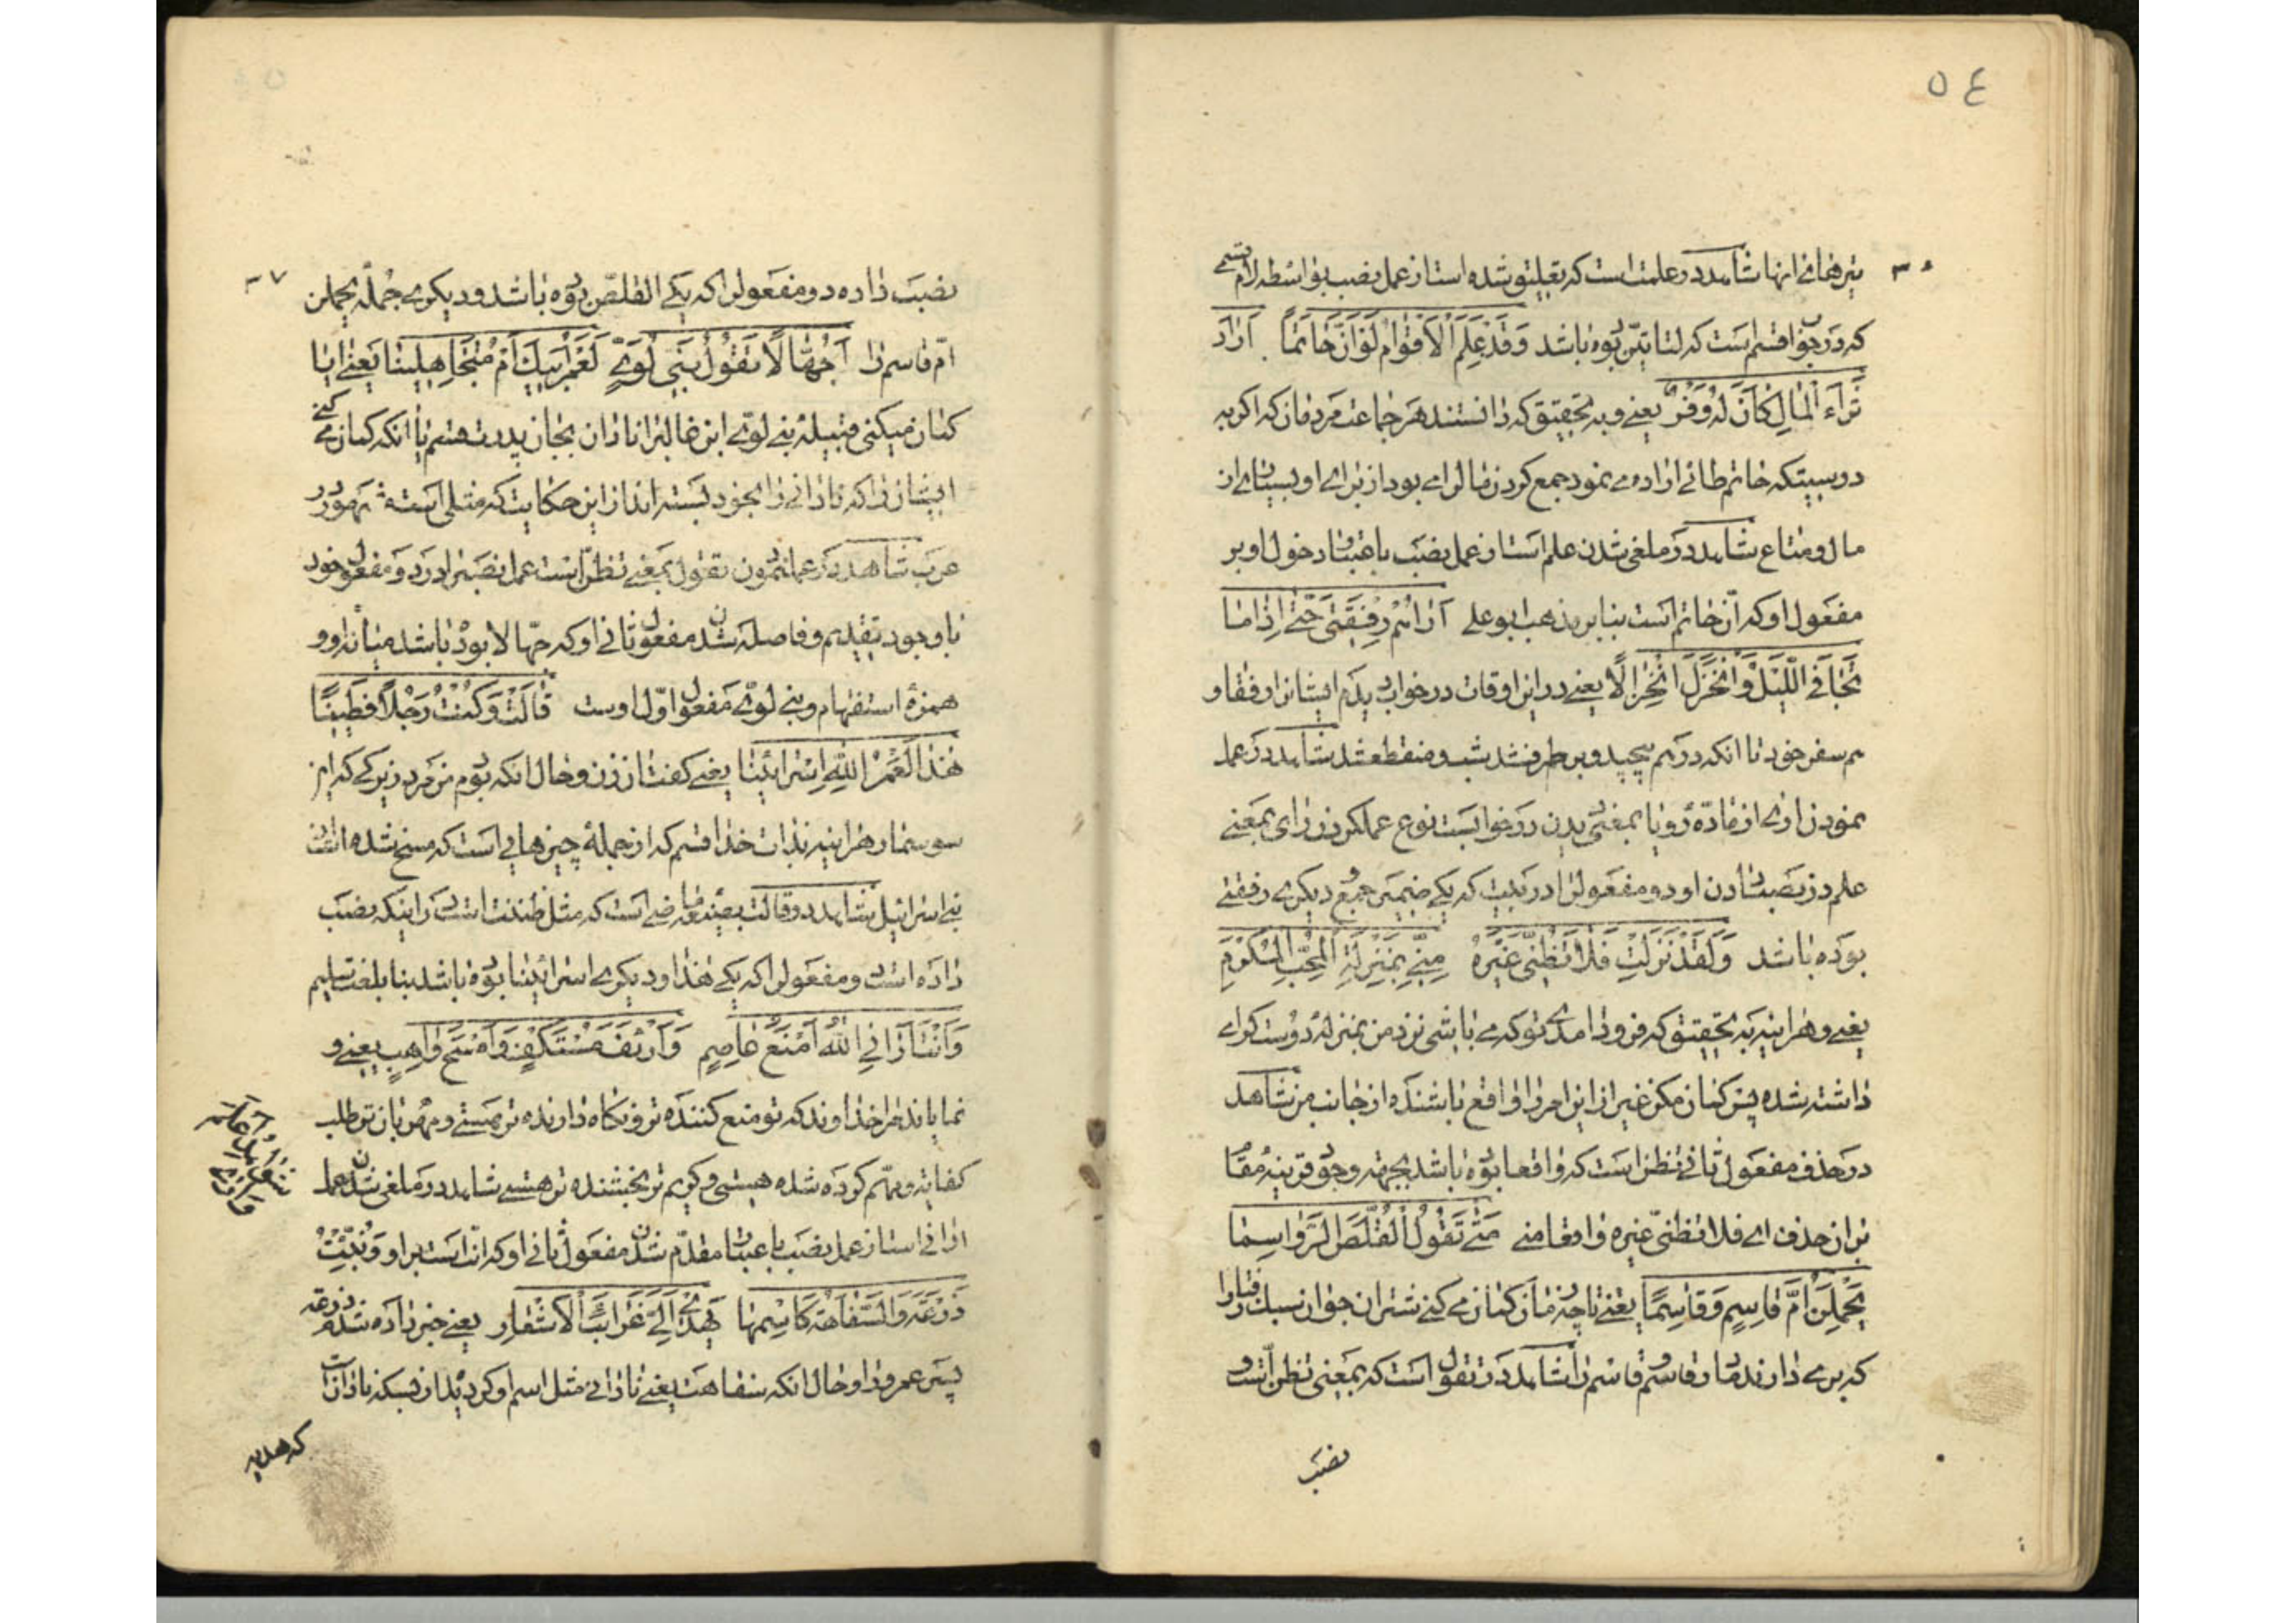 ٥٤
تیرهای انها شاهد در علمت است که تعلیق شده است از عمل نصب بواسطه لام قسمی
که در جواب قسم است که لتاتین بوده باشد وَقَدْ عَلِمَ الْاَقْوَامُ لَوْ اَنَّ حَاتِمًا اَرَادَ
ثَرَاءَ الْمَالِ كَانَ لَهُ وَفْرٌ یعنی و به تحقیق که دانستند هر جماعت مردمان که اکر به
درستیکه حاتم طائی اراده می نمود جمع کردن مال را می بود از برای او بسیاری از
مال و متاع شاهد در ملغی شدن علم است از عمل نصب باعتبار دخول لو بر
مفعول او که انّ حاتم است بنا بر مذهب ابو علی اَرَاهُمْ رِفْقَتِی حَتّٰی اِذَا مَا
تَجَافَی اللَّیْلُ وَانْخَزَلَ انْخِزَالًا یعنی در این اوقات در خواب دیدم ایشانرا رفقا و
هم سفر خود تا انکه درهم پیچید و برطرف شد شب و منقطع شد شاهد در عمل
نمودن اری از مادّه رؤیا بمعنی دیدن در خوابست نوع عمل کردن رای بمعنی
علم در نصب دادن او دو مفعول را در بیت که یکی ضمیر جمع و دیکری رفقتی
بوده باشد وَلَقَدْ نَزَلْتِ فَلَا تَظُنِّی غَیْرَهُ مِنِّی بِمَنْزِلَةِ الْمُحَبِّ الْمُکْرَمِ
یعنی و هراینه به تحقیق که فرود امدی تو که می باشی نزد من بمنزله دوست کرامی
داشته شده پس کمان مکن غیر از این امر را واقع باشنده از جانب من شاهد
در حذف مفعول ثانی تظن است که واقعا بوده باشد بجهة وجود قرینه مقام
بر ان حذف ای فلا تظنی غیره واقعا منی مَتٰی تَقُولُ الْقُلُصَ الرَّوَاسِمَا
یَحْمِلْنَ اُمَّ قَاسِمٍ وَقَاسِمًا یعنی تا چه زمان کمان می کنی شتران جوان سبک رفتار را
که بر می دارند مادر قاسم و قاسم را شاهد در تقول است که بمعنی تظن است و
نصب
نصب داده دو مفعول را که یکی القلص بوده باشد و دیکری جمله یحملن
امّ قاسم را اَجُهَّالًا تَقُولُ بَنِی لُوَیٍّ لَعَمْرُ اَبِیكَ اَمْ مُتَجَاهِلِینَا یعنی ایا
کمان میکنی قبیله بنی لوی ابن غالب را نادان بجان پدرت قسم یا انکه کمان می کنی
ایشان را که نادانی را بخود بسته اند از این حکایت که مثلی است مشهور در
عرب شاهد در عمل نمودن تقول بمعنی تظن است عمل نصب را در دو مفعول خود
با وجود تقدیم و فاصله شدن مفعول ثانی او که جهّالا بوده باشد میانه او و
همزهٔ استفهام و بنی لوی مفعول اوّل اوست قَالَتْ وَکُنْتُ رَجُلًا فَطِینًا
هٰذَا لَعَمْرُ اللهِ اِسْرَائِینَا یعنی کفت ان زن و حال انکه بودم من مرد زیرکی که این
سوسمار هراینه بذات خدا قسم که از جملهٔ چیزهایی است که مسخ شده از
بنی اسرائیل شاهد در قالت بصیغه ماضی است که مثل ظننت است در اینکه نصب
داده است دو مفعول را که یکی هذا و دیکری اسرائینا بوده باشد بنا بلغت سلیم
وَاَنْتَ اَرَانِی اللهُ اَمْنَعُ عَاصِمٍ وَاَرْئَفُ مُسْتَکْفًی وَاَسْمَحُ وَاهِبٍ یعنی و
نمایاند مرا خداوند که تو منع کننده تر و نکاه دارنده تر هستی و مهربان تر طلب
کفایة و مهمّ کرده شده هستی و کریم تر بخشنده تر هستی شاهد در ملغی شدن عمل
ارانی است از عمل نصب باعتبار مقدّم شدن مفعول ثانی او که انت است بر او وَنُبِّئْتُ
زُرْعَةَ وَالسَّفَاهَةُ کَاسْمِهَا یُهْدِی اِلَیَّ غَرَائِبَ الْاَشْعَارِ یعنی خبر داده شدم زرعه
پسر عمرو را و حال انکه سفاهت یعنی نادانی مثل اسم او کردیده از بسکه نادان است
که هدیه